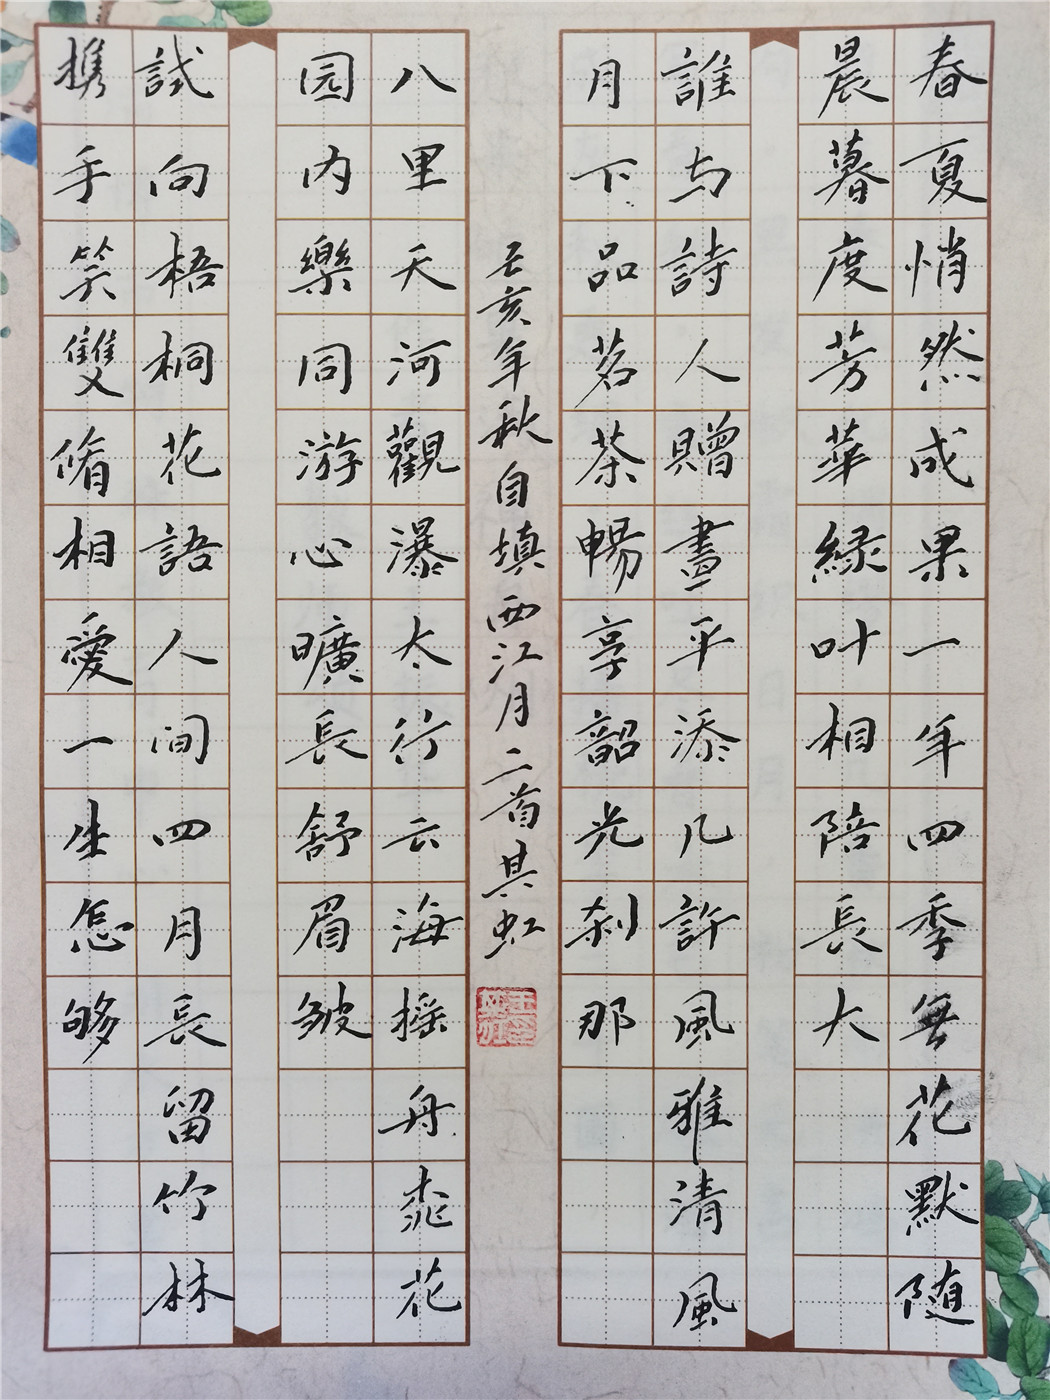 春夏悄然成果一年四季無花默随
晨暮度芳華緑叶相陪長大
誰与詩人贈畫平添几許風雅清風
月下品茗茶暢享韶光刹那
壬亥年秋自填西江月二首其虹
八里天河觀瀑太行云海摇舟桃花
园内樂同游心曠長舒眉皱
試向梧桐花語人间四月長留竹林
携手笑雙脩相愛一生怎够